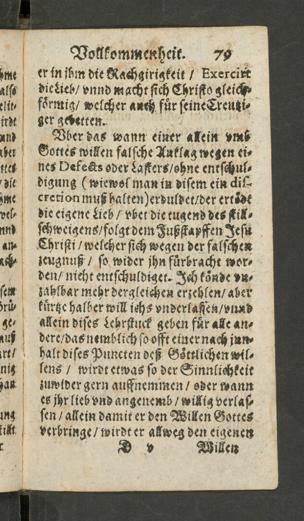 Vollkommenheit. 79
er in jhm die Rachgirigkeit / Exercirt
die Lieb / vnnd macht sich Christo gleich-
förmig / welcher auch für seine Creutzi-
ger gebetten.
Vber das wann einer allein vmb
Gottes willen falsche Anklag wegen ei-
nes Defects oder Lasters / ohne entschul-
digung (wiewol man in disem ein dis-
cretion muß halten) erduldet / der ertödt
die eigene Lieb / vbet die tugend des still-
schweigens / folgt dem Fußstapffen Jesu
Christi / welcher sich wegen der falschen
zeugnuß / so wider jhn fürbracht wor-
den / nicht entschuldiget. Ich könde vn-
zahlbar mehr dergleichen erzehlen / aber
kürtze halber will ichs vnderlassen / vnnd
allein dises Lehrstuck geben für alle an-
dere / das nemblich so offt einer nach inn-
halt dises Puncten deß Göttlichen wil-
lens / wirdt etwas so der Sinnlichkeit
zuwider gern auffnemmen / oder wann
es jhr lieb vnd angenemb / willig verlas-
sen / allein damit er den Willen Gottes
verbringe / wirdt er allweg den eigenen
D v Willen